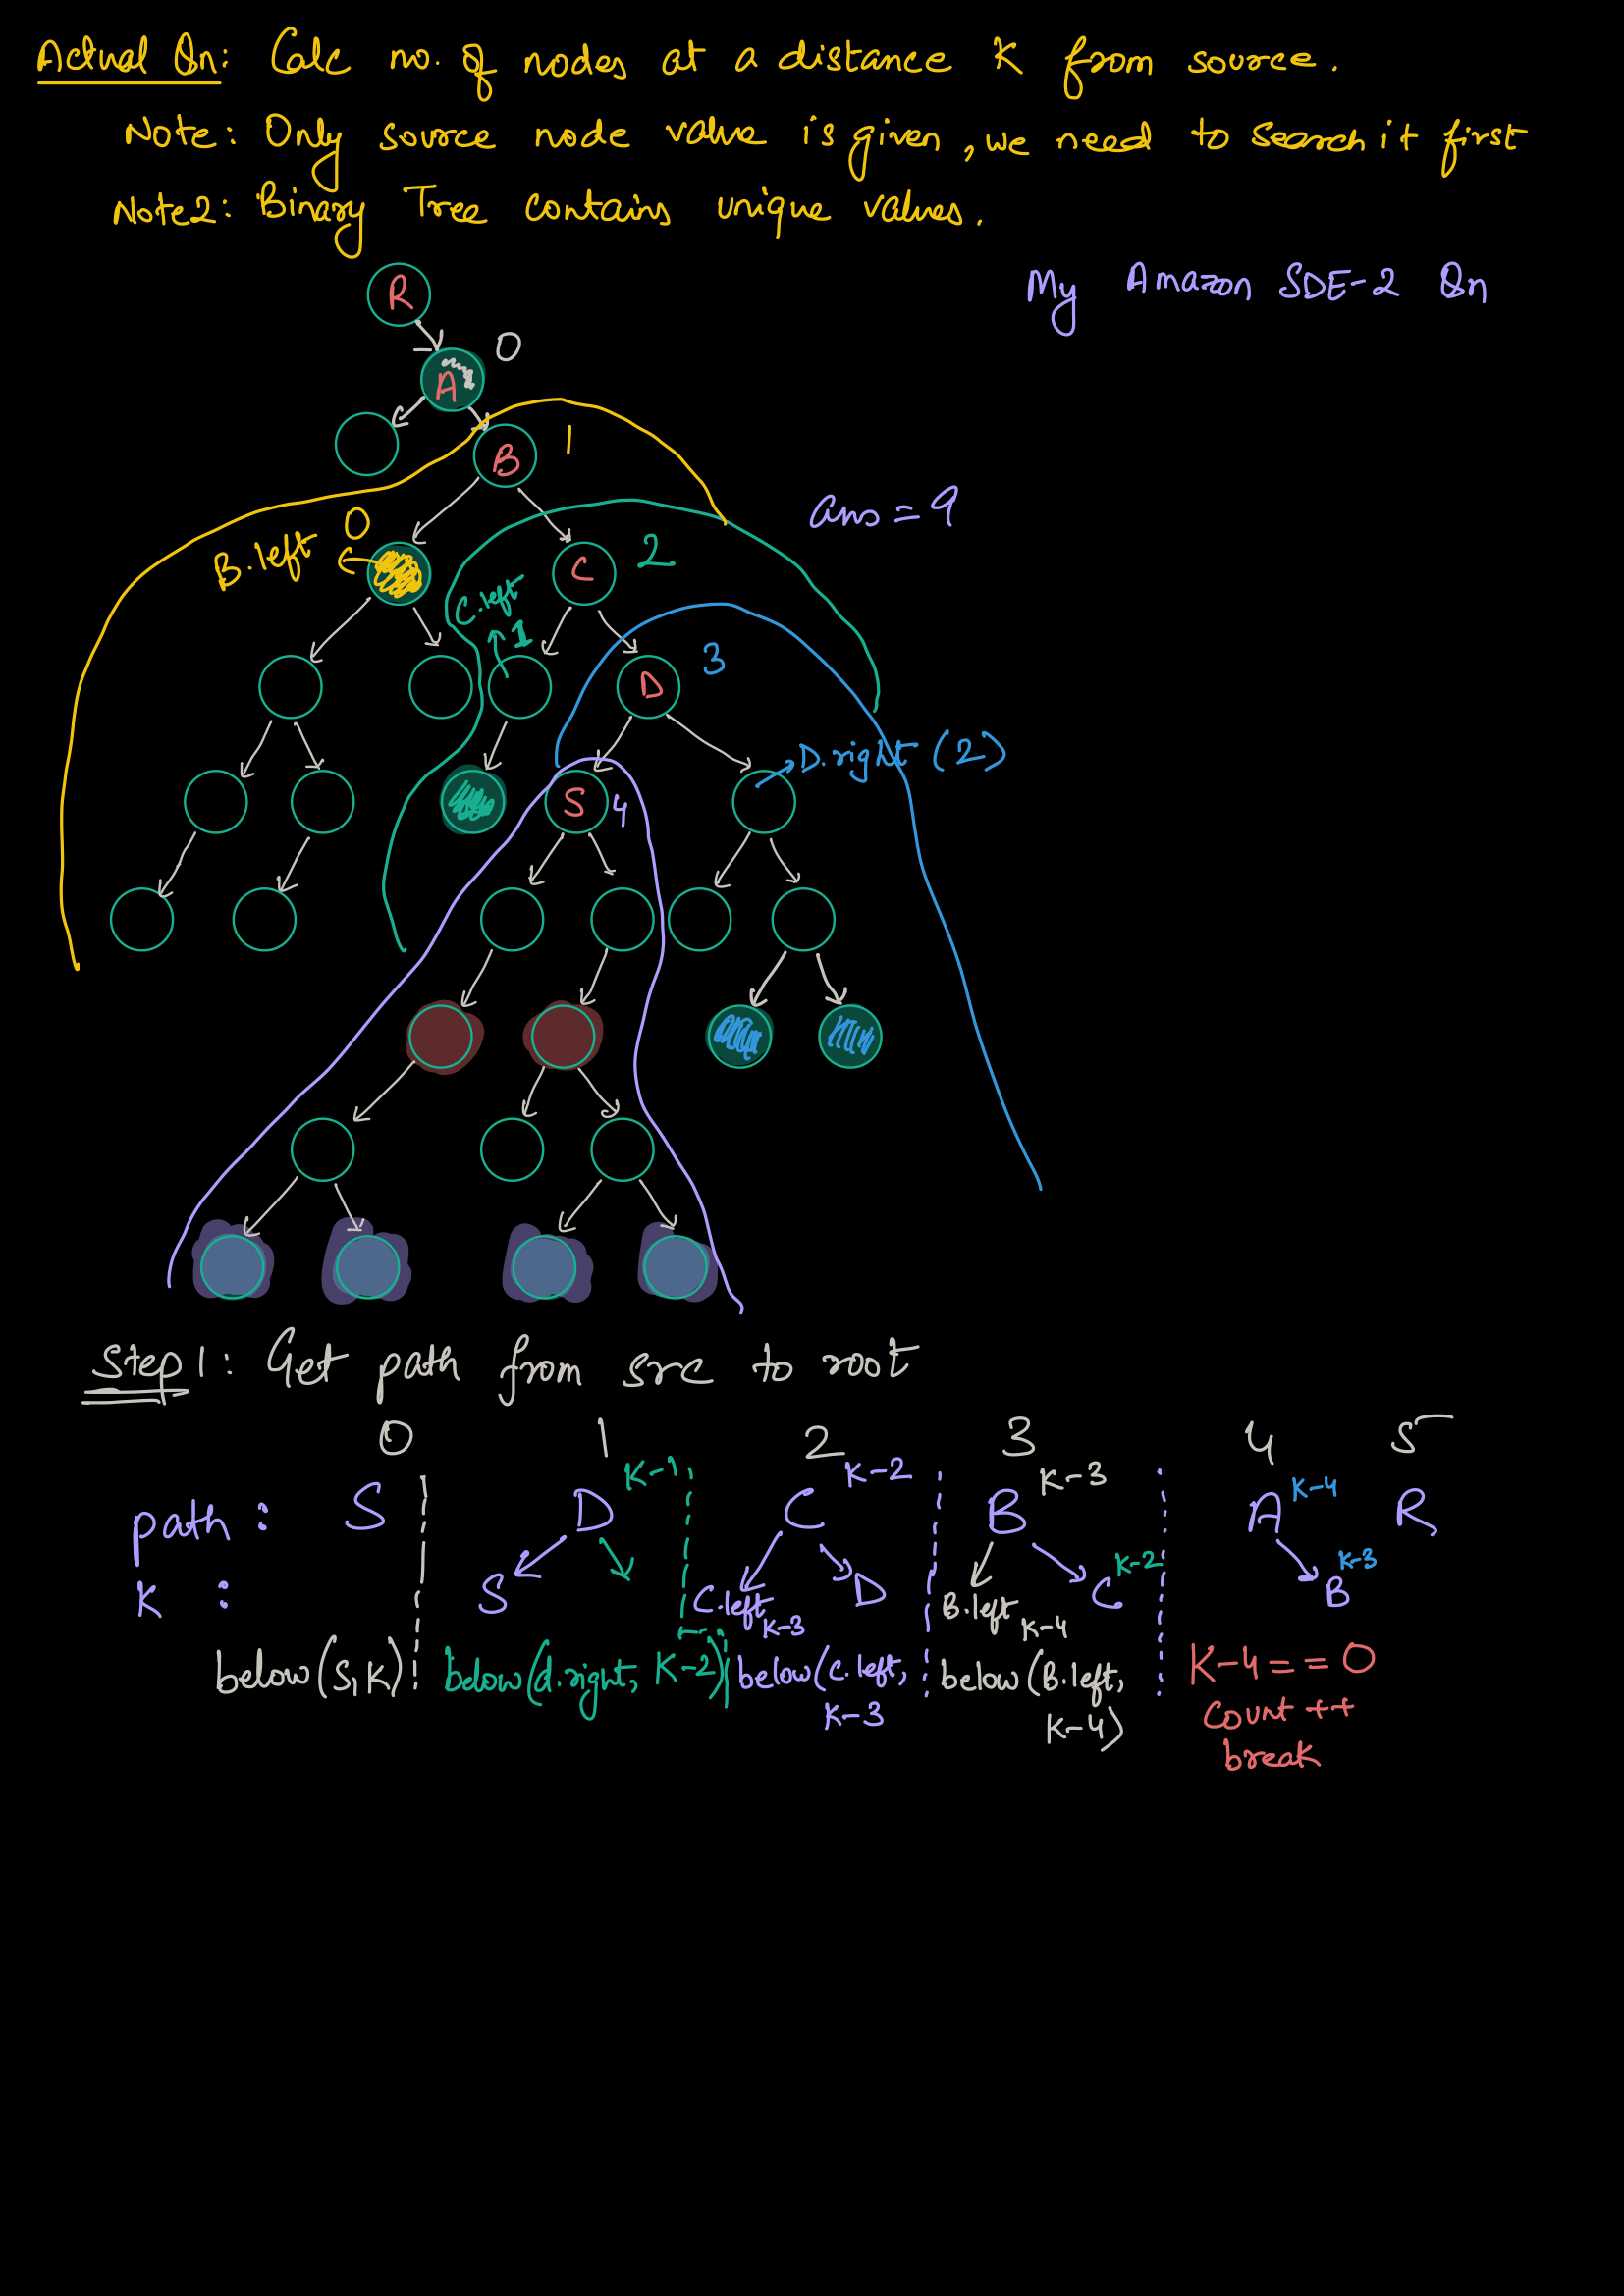 Actual Qn: Calc no. of nodes at a distance K from source.
Note: Only source node value is given, we need to search it first
Note2: Binary Tree contains unique values.
My Amazon SDE-2 Qn
R
A 0
B 1
ans = 9
B.left 0
C 2
C.left 1
D 3
D.right (2)
S 4
Step 1: Get path from src to root
0 1 2 3 4 5
path : S D K-1 C K-2 B K-3 A K-4 R
K : S C.left K-3 D B.left K-4 C K-2 B K-3
below(S, K) below(d.right, K-2) below(C.left, K-3 below(B.left, K-4) K-4 == 0
count ++
break